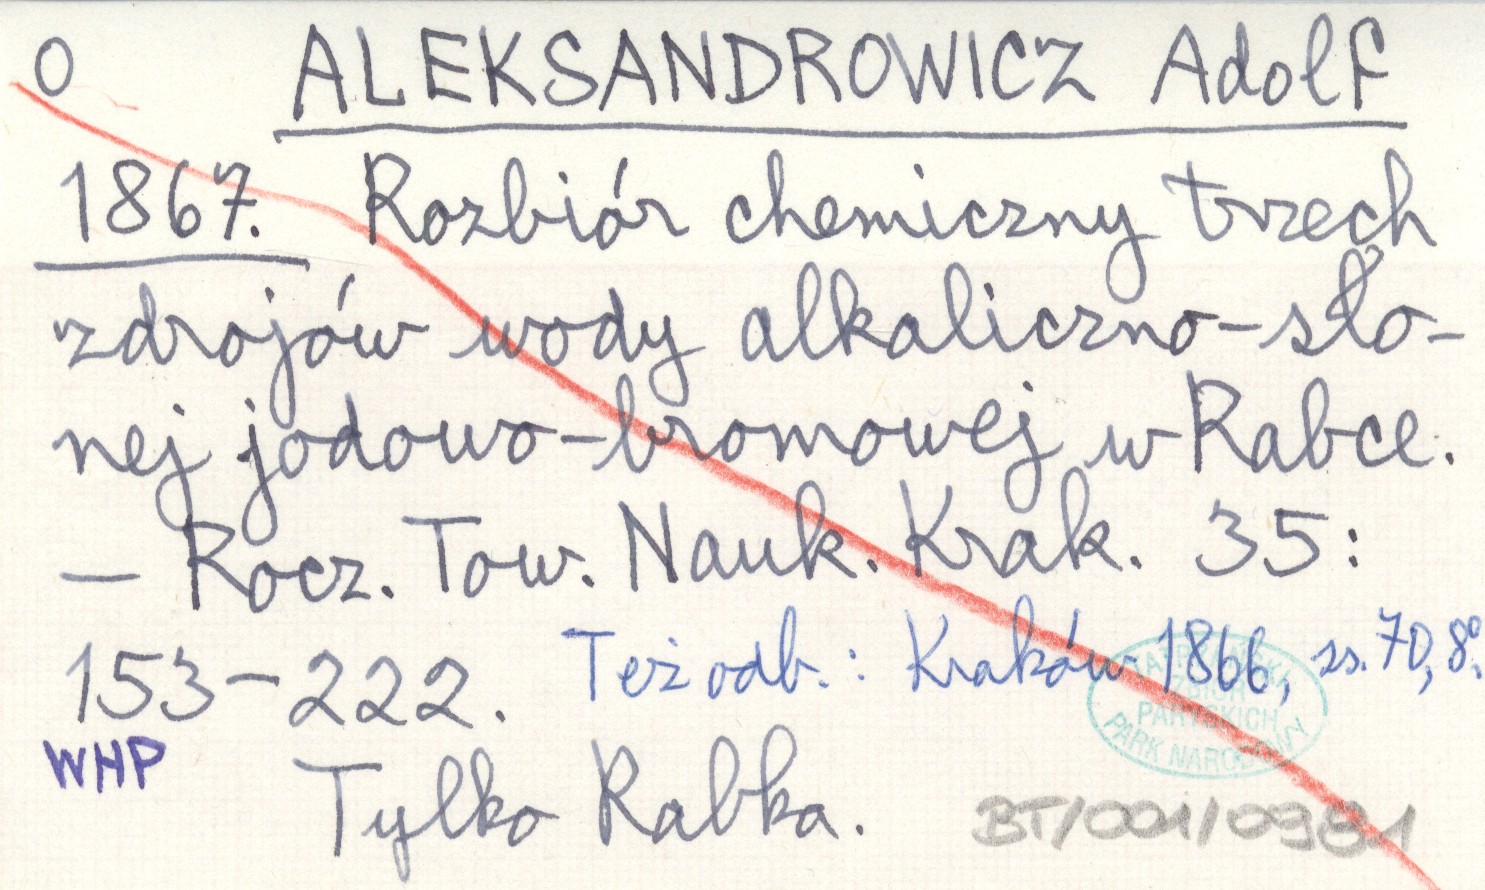 O ALEKSANDROWICZ Adolf
1867. Rozbiór chemiczny trzech
zdrojów wody alkaliczno-sło-
nej jodowo-bromowej w Rabce.
— Rocz. Tow. Nauk. Krak. 35:
153-222. Też odb.: Kraków 1866, ss. 70, 8°.
WHP
Tylko Rabka.
TATRZAŃSKI
ZBIÓR
PARYSKICH
PARK NARODOWY
BT/001/0981